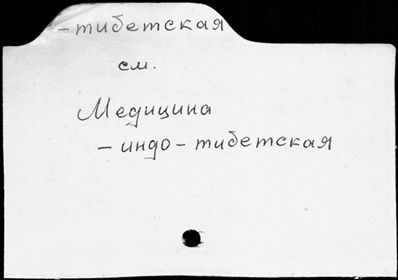 -тибетская
см.
Медицина
-индо-тибетская